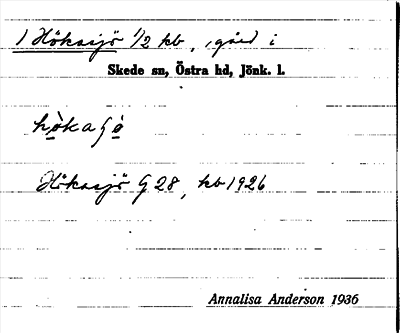 1 Höksjö 1/2 kb, gård i
Skede sn, Östra hd, Jönk. l.
Höksjö G 28, kb 1926
Annalisa Anderson 1936